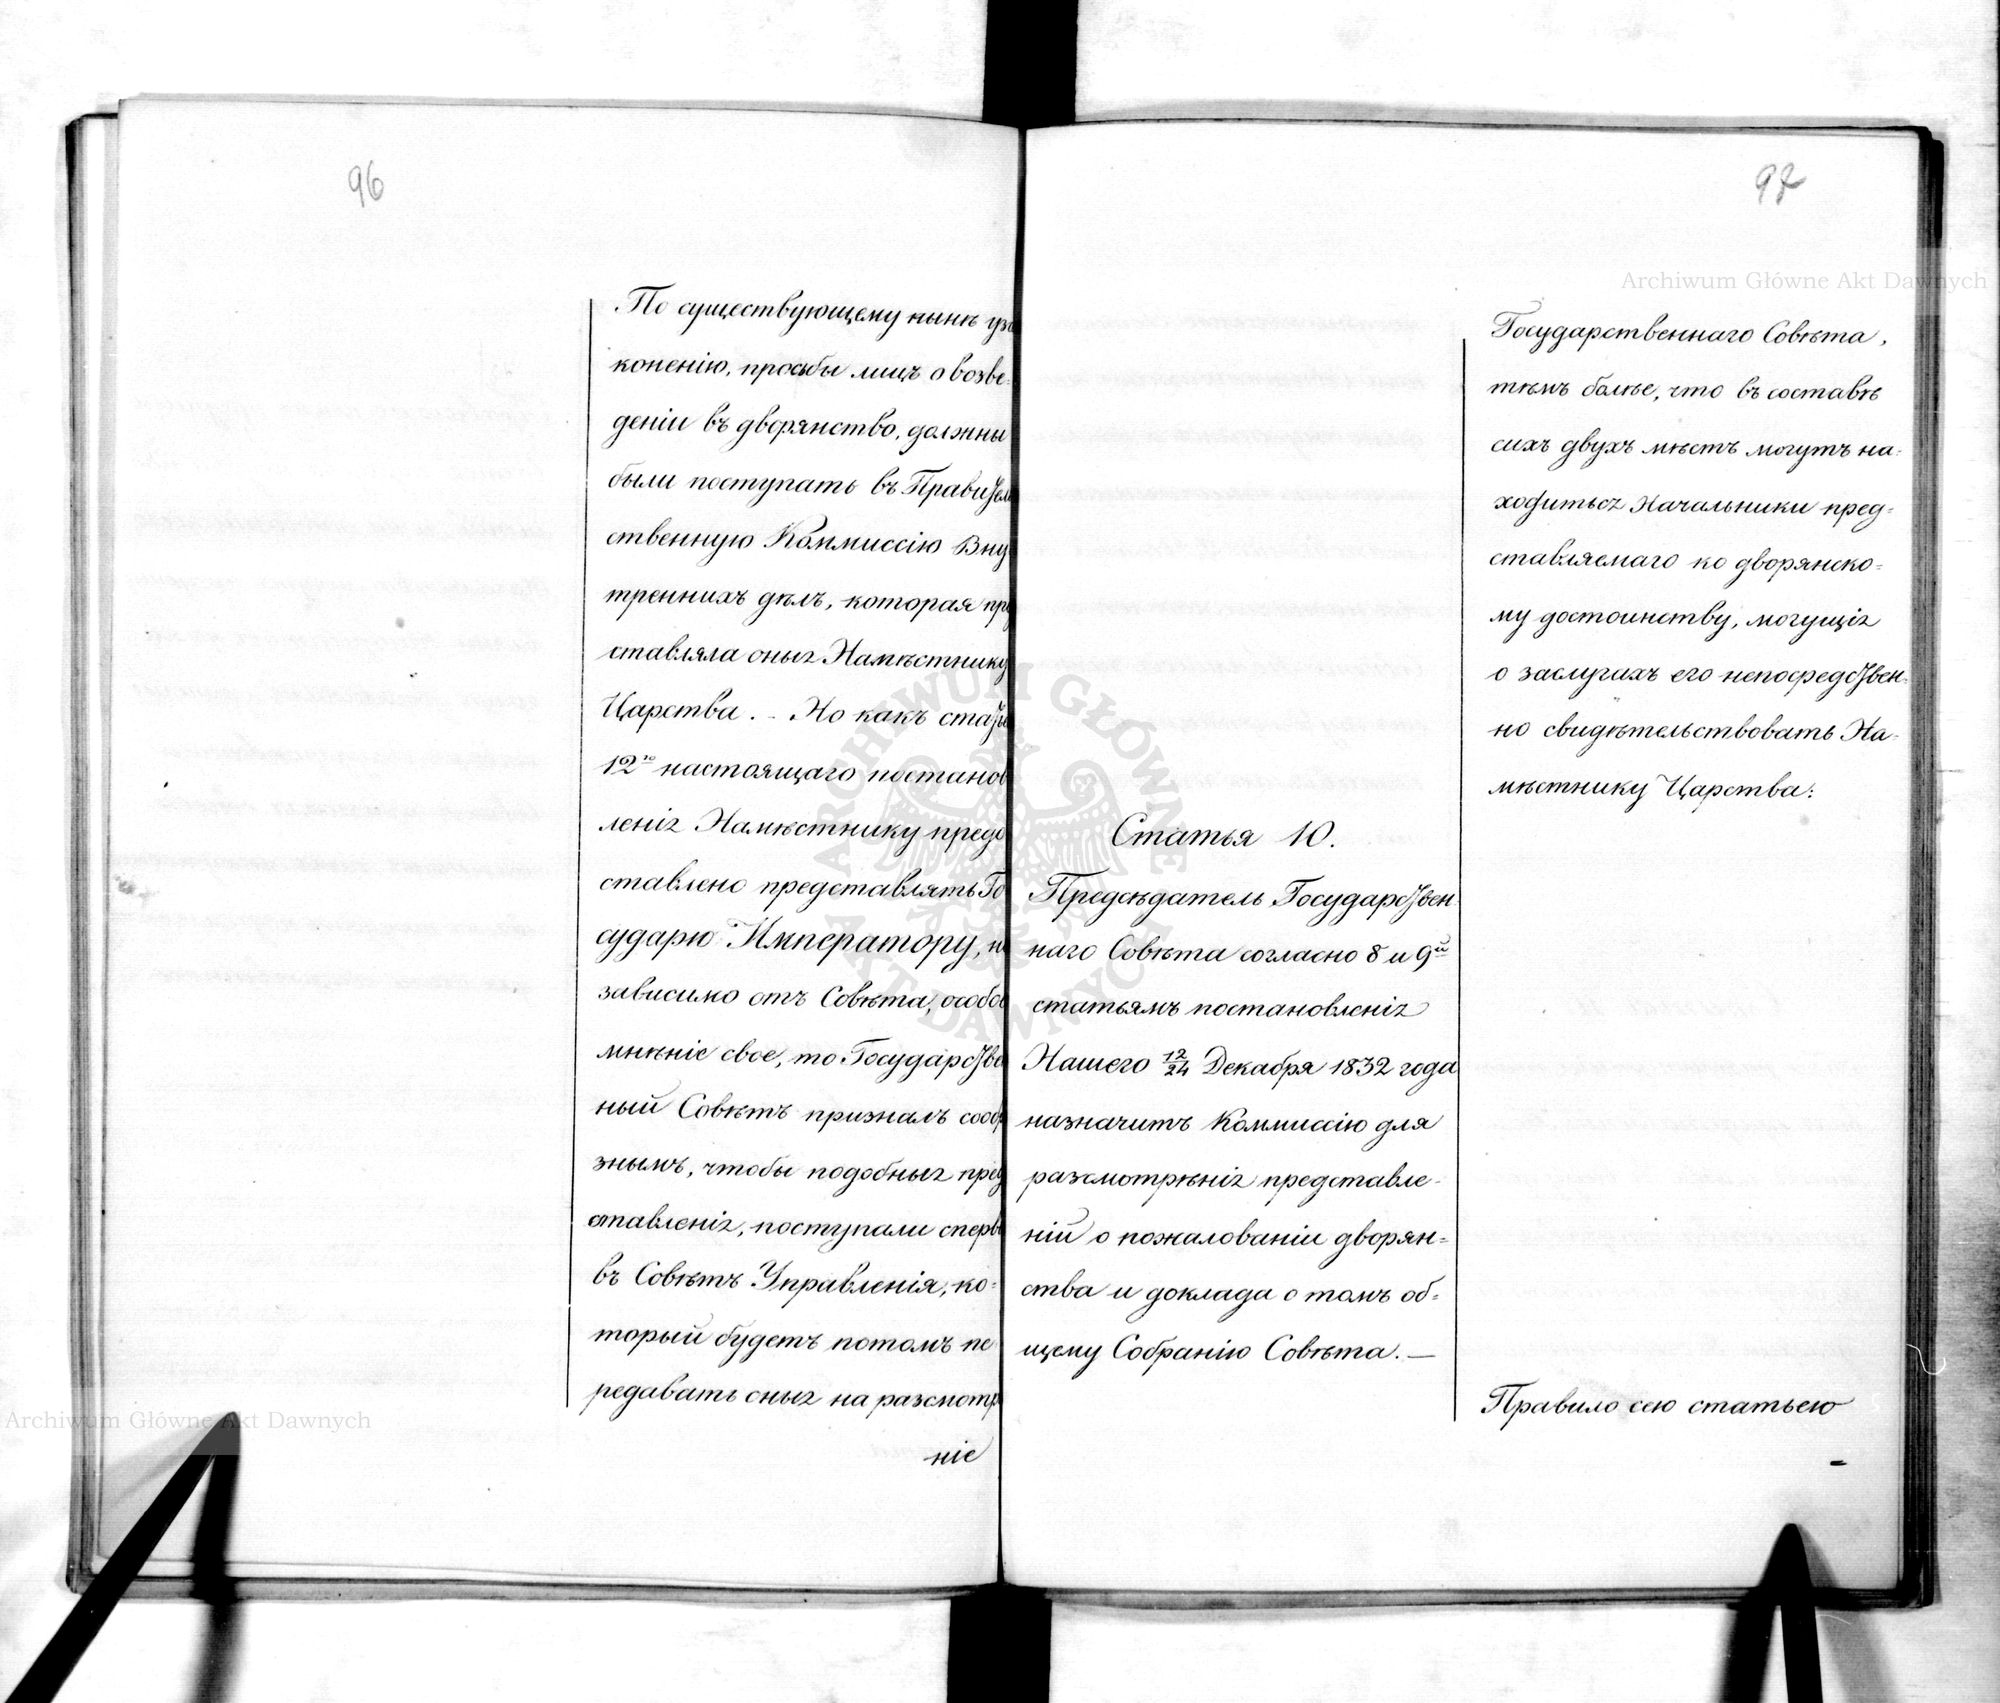 96
По существующему нынѣ уза
коненію, прозьбы лицъ о возве-
деніи въ дворянство, должны
были поступать въ Правитель
ственную Коммиссію Вну
треннихъ дѣлъ, которая пре
ставляла оныя Намѣстнику
Царства. — Но какъ стать
12ю настоящаго постанов
ленія Намѣстнику предо
ставлено представлять Го
сударю Императору, не
зависимо отъ Совѣта, особо
мнѣніе свое, то Государстве
ный Совѣтъ призналъ сооб
знымъ, чтобы подобныя пред
ставленія, поступали сперв
въ Совѣтъ Управленія, ко-
торый будетъ потомъ пе
редавать оныя на разсмотр
ніе
97
Статья 10.
Предсѣдатель Государствен
наго Совѣта согласно 8 и 9й
статьямъ постановленія
Нашего 12/24 Декабря 1832 года
назначитъ Коммиссію для
разсмотрѣнія представле-
ній о пожалованіи дворян-
ства и доклада о томъ об-
щему Собранію Совѣта. —
Государственнаго Совѣта,
тѣмъ болѣе, что въ составѣ
сихъ двухъ мѣстъ могутъ на-
ходиться Начальники пред-
ставляемаго ко дворянско-
му достоинству, могущія
о заслугахъ его непосредствен-
но свидѣтельствовать На-
мѣстнику Царства.
Правило сею статьею
Archiwum Główne Akt Dawnych
Archiwum Główne Akt Dawnych
ARCHIWUM GŁÓWNE AKT DAWNYCH